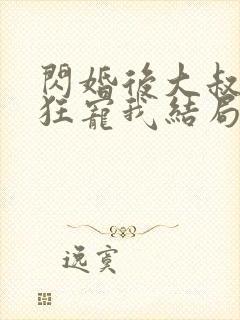 閃婚後大叔
狂寵我結局
逸寞